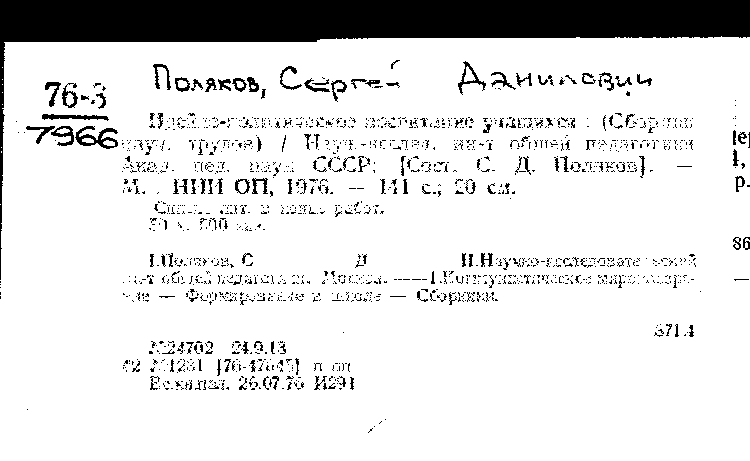 Поляков, Сергей Данилович
76-3
7966
Идейно-политическое воспитание учащихся : (Сборник
науч. трудов) / Науч.-исслед. ин-т общей педагогики
Акад. пед. наук СССР; [Сост. С. Д. Поляков]. —
М. : НИИ ОП, 1976. — 141 с.; 20 см.
Список лит. в конце работ.
500 экз.
I.Поляков, С Д II.Научно-исследовательский
ин-т общей педагогики. Москва. ——1.Коммунистическое мировоззре-
ние — Формирование в школе — Сборники.
371.4
№24702 24.9.13
№1231 [76-47645] п оп
Вс.кн.пал. 26.07.76 И291
86
р.